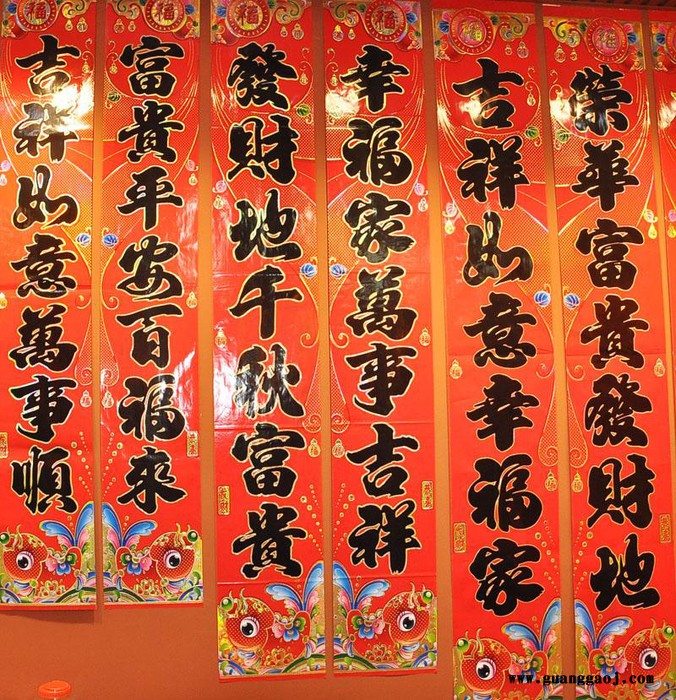 榮華富貴發財地
吉祥如意幸福家
幸福家萬事吉祥
發財地千秋富貴
富貴平安百福來
吉祥如意萬事順
福
福
福
福
福
福
www.guanggaoj.com